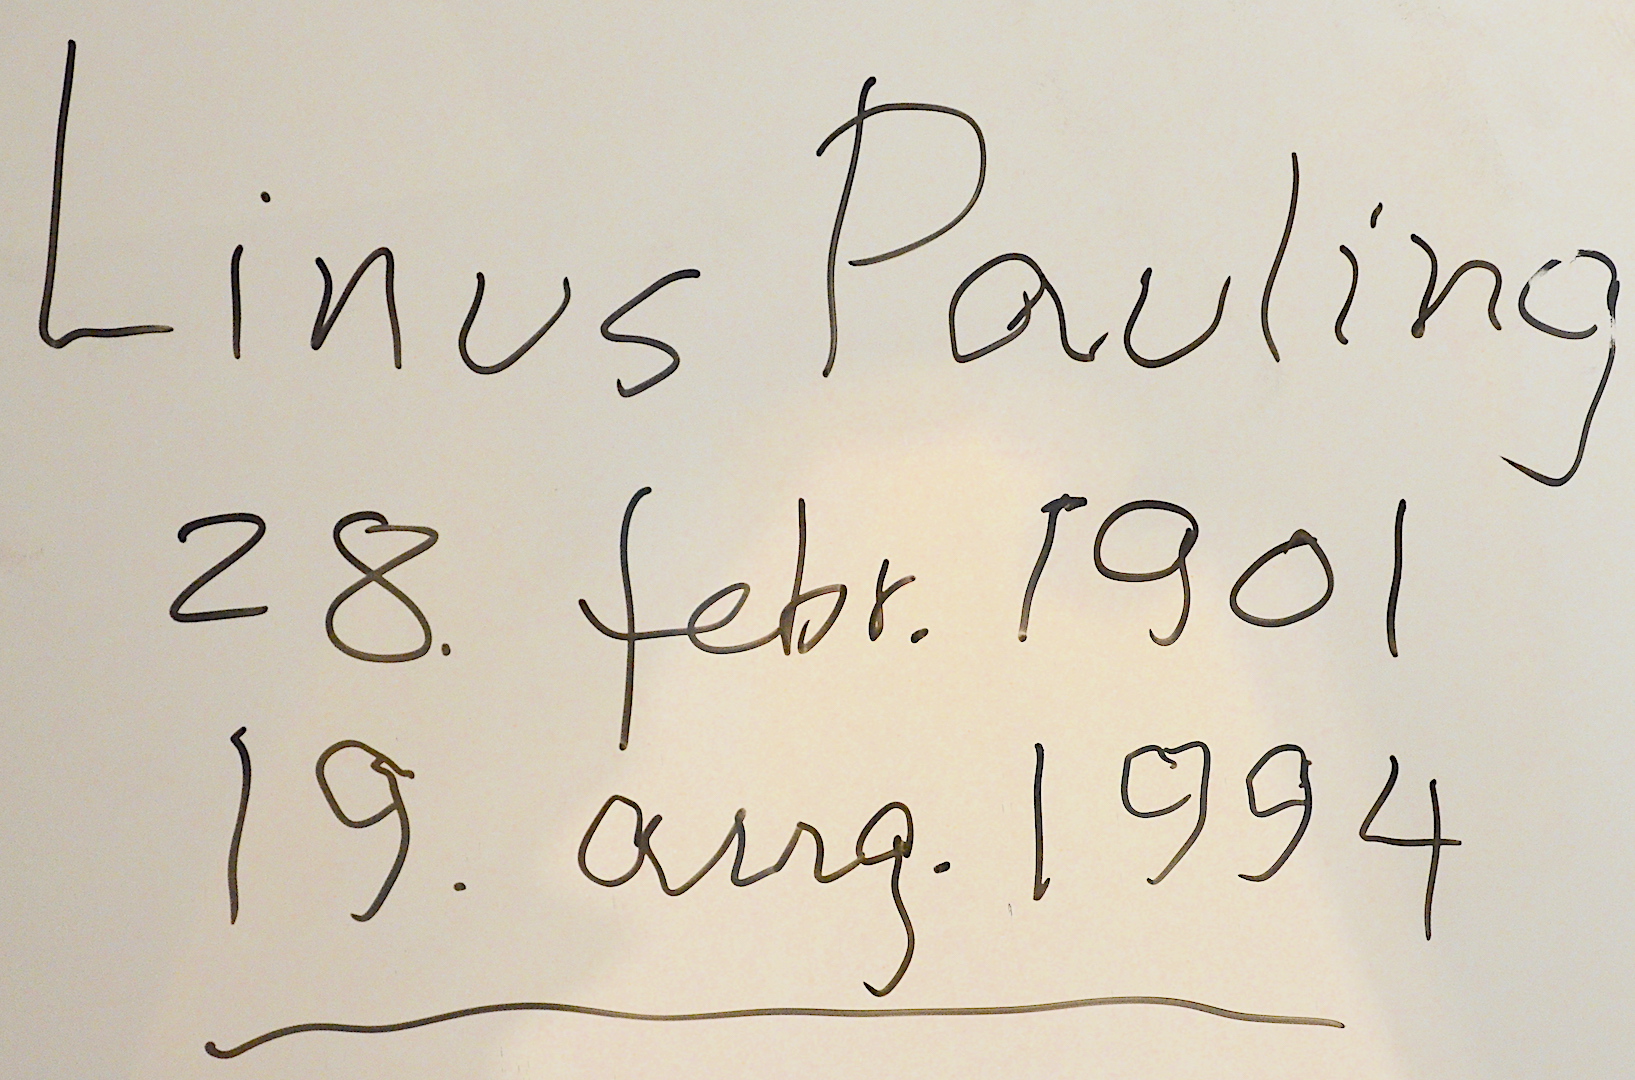 Linus Pauling
28. febr. 1901
19. aug. 1994